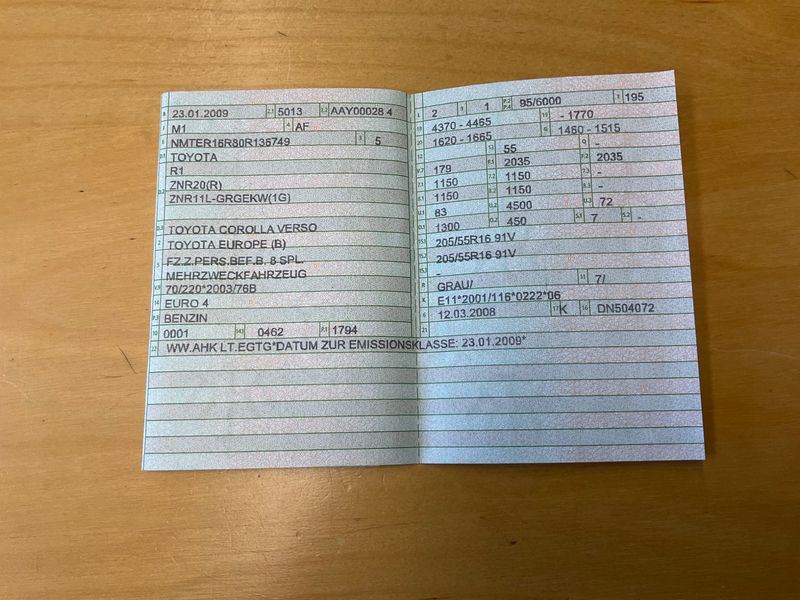 B 23.01.2009 2.1 5013 2.2 AAY00028 4
J M1 4 AF
E NMTER16R80R136749 3 5
D.1 TOYOTA
R1
D.2 ZNR20(R)
ZNR11L-GRGEKW(1G)
D.3 TOYOTA COROLLA VERSO
2 TOYOTA EUROPE (B)
5 FZ.Z.PERS.BEF.B. 8 SPL.
MEHRZWECKFAHRZEUG
V.9 70/220*2003/76B
14 EURO 4
P.3 BENZIN
10 0001 14.1 0462 P.1 1794
22 WW.AHK LT.EGTG*DATUM ZUR EMISSIONSKLASSE: 23.01.2009*
L 2 9 1 P.2 P.4 95/6000 T 195
18 4370 - 4465 19 - 1770
20 1620 - 1665 G 1460 - 1515
12 - 13 55 Q -
V.7 179 F.1 2035 F.2 2035
7.1 1150 7.2 1150 7.3 -
8.1 1150 8.2 1150 8.3 -
U.1 83 U.2 4500 U.3 72
O.1 1300 O.2 450 S.1 7 S.2 -
15.1 205/55R16 91V
15.2 205/55R16 91V
15.3 -
R GRAU/ 11 7/
K E11*2001/116*0222*06
6 12.03.2008 17 K 16 DN504072
21